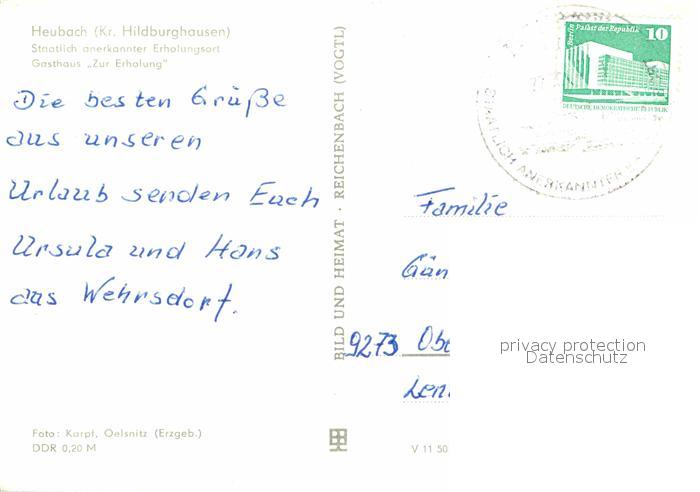 Heubach (Kr. Hildburghausen)
Staatlich anerkannter Erholungsort
Gasthaus „Zur Erholung"
Die besten Grüße
aus unseren
Urlaub senden Euch
Ursula und Hans
aus Wehrsdorf.
Foto: Karpf, Oelsnitz (Erzgeb.)
DDR 0,20 M
BILD UND HEIMAT · REICHENBACH (VOGTL)
V 11 50
Berlin Palast der Republik
10
DEUTSCHE DEMOKRATISCHE REPUBLIK
STAATLICH ANERKANNTER
Familie
Gün
9273 Obe
privacy protection
Datenschutz